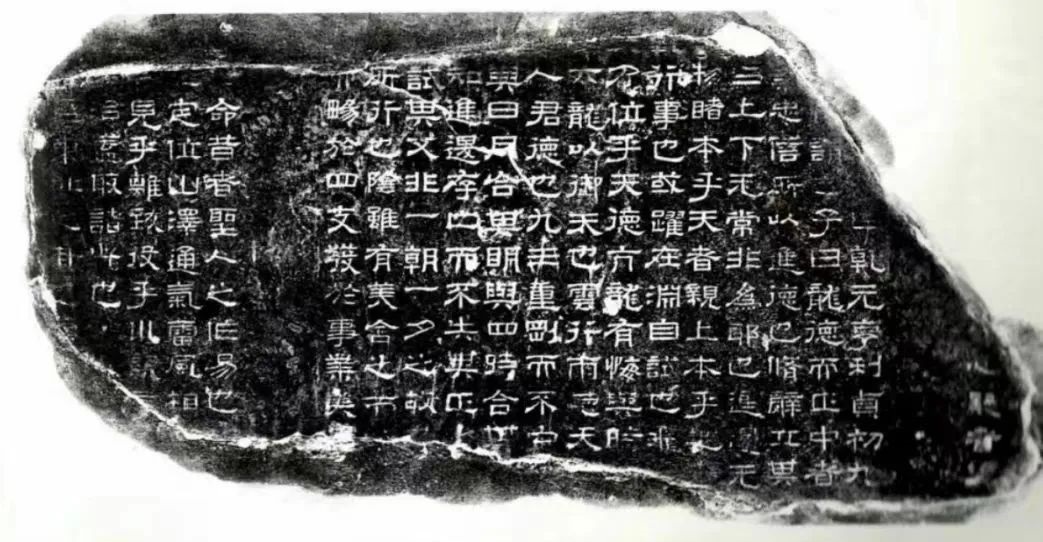 乾元亨利貞初九
子曰龍德而正中者
忠信所以進德也脩辭立其
上下无常非為邪也進退无
物睹本乎天者親上本乎地
行事也或躍在淵自試也飛
乃位乎天德亢龍有悔與時
六龍以御天也雲行雨施天
人君德也九三重剛而不中
與日月合其明與四時合其
知進退存亡而不失其正
試其父非一朝一夕之故
所行也陰雖有美含之
暢於四支發於事業美
命昔者聖人之作易也
定位山澤通氣雷風相
見乎離致役乎說
蓋取諸此也